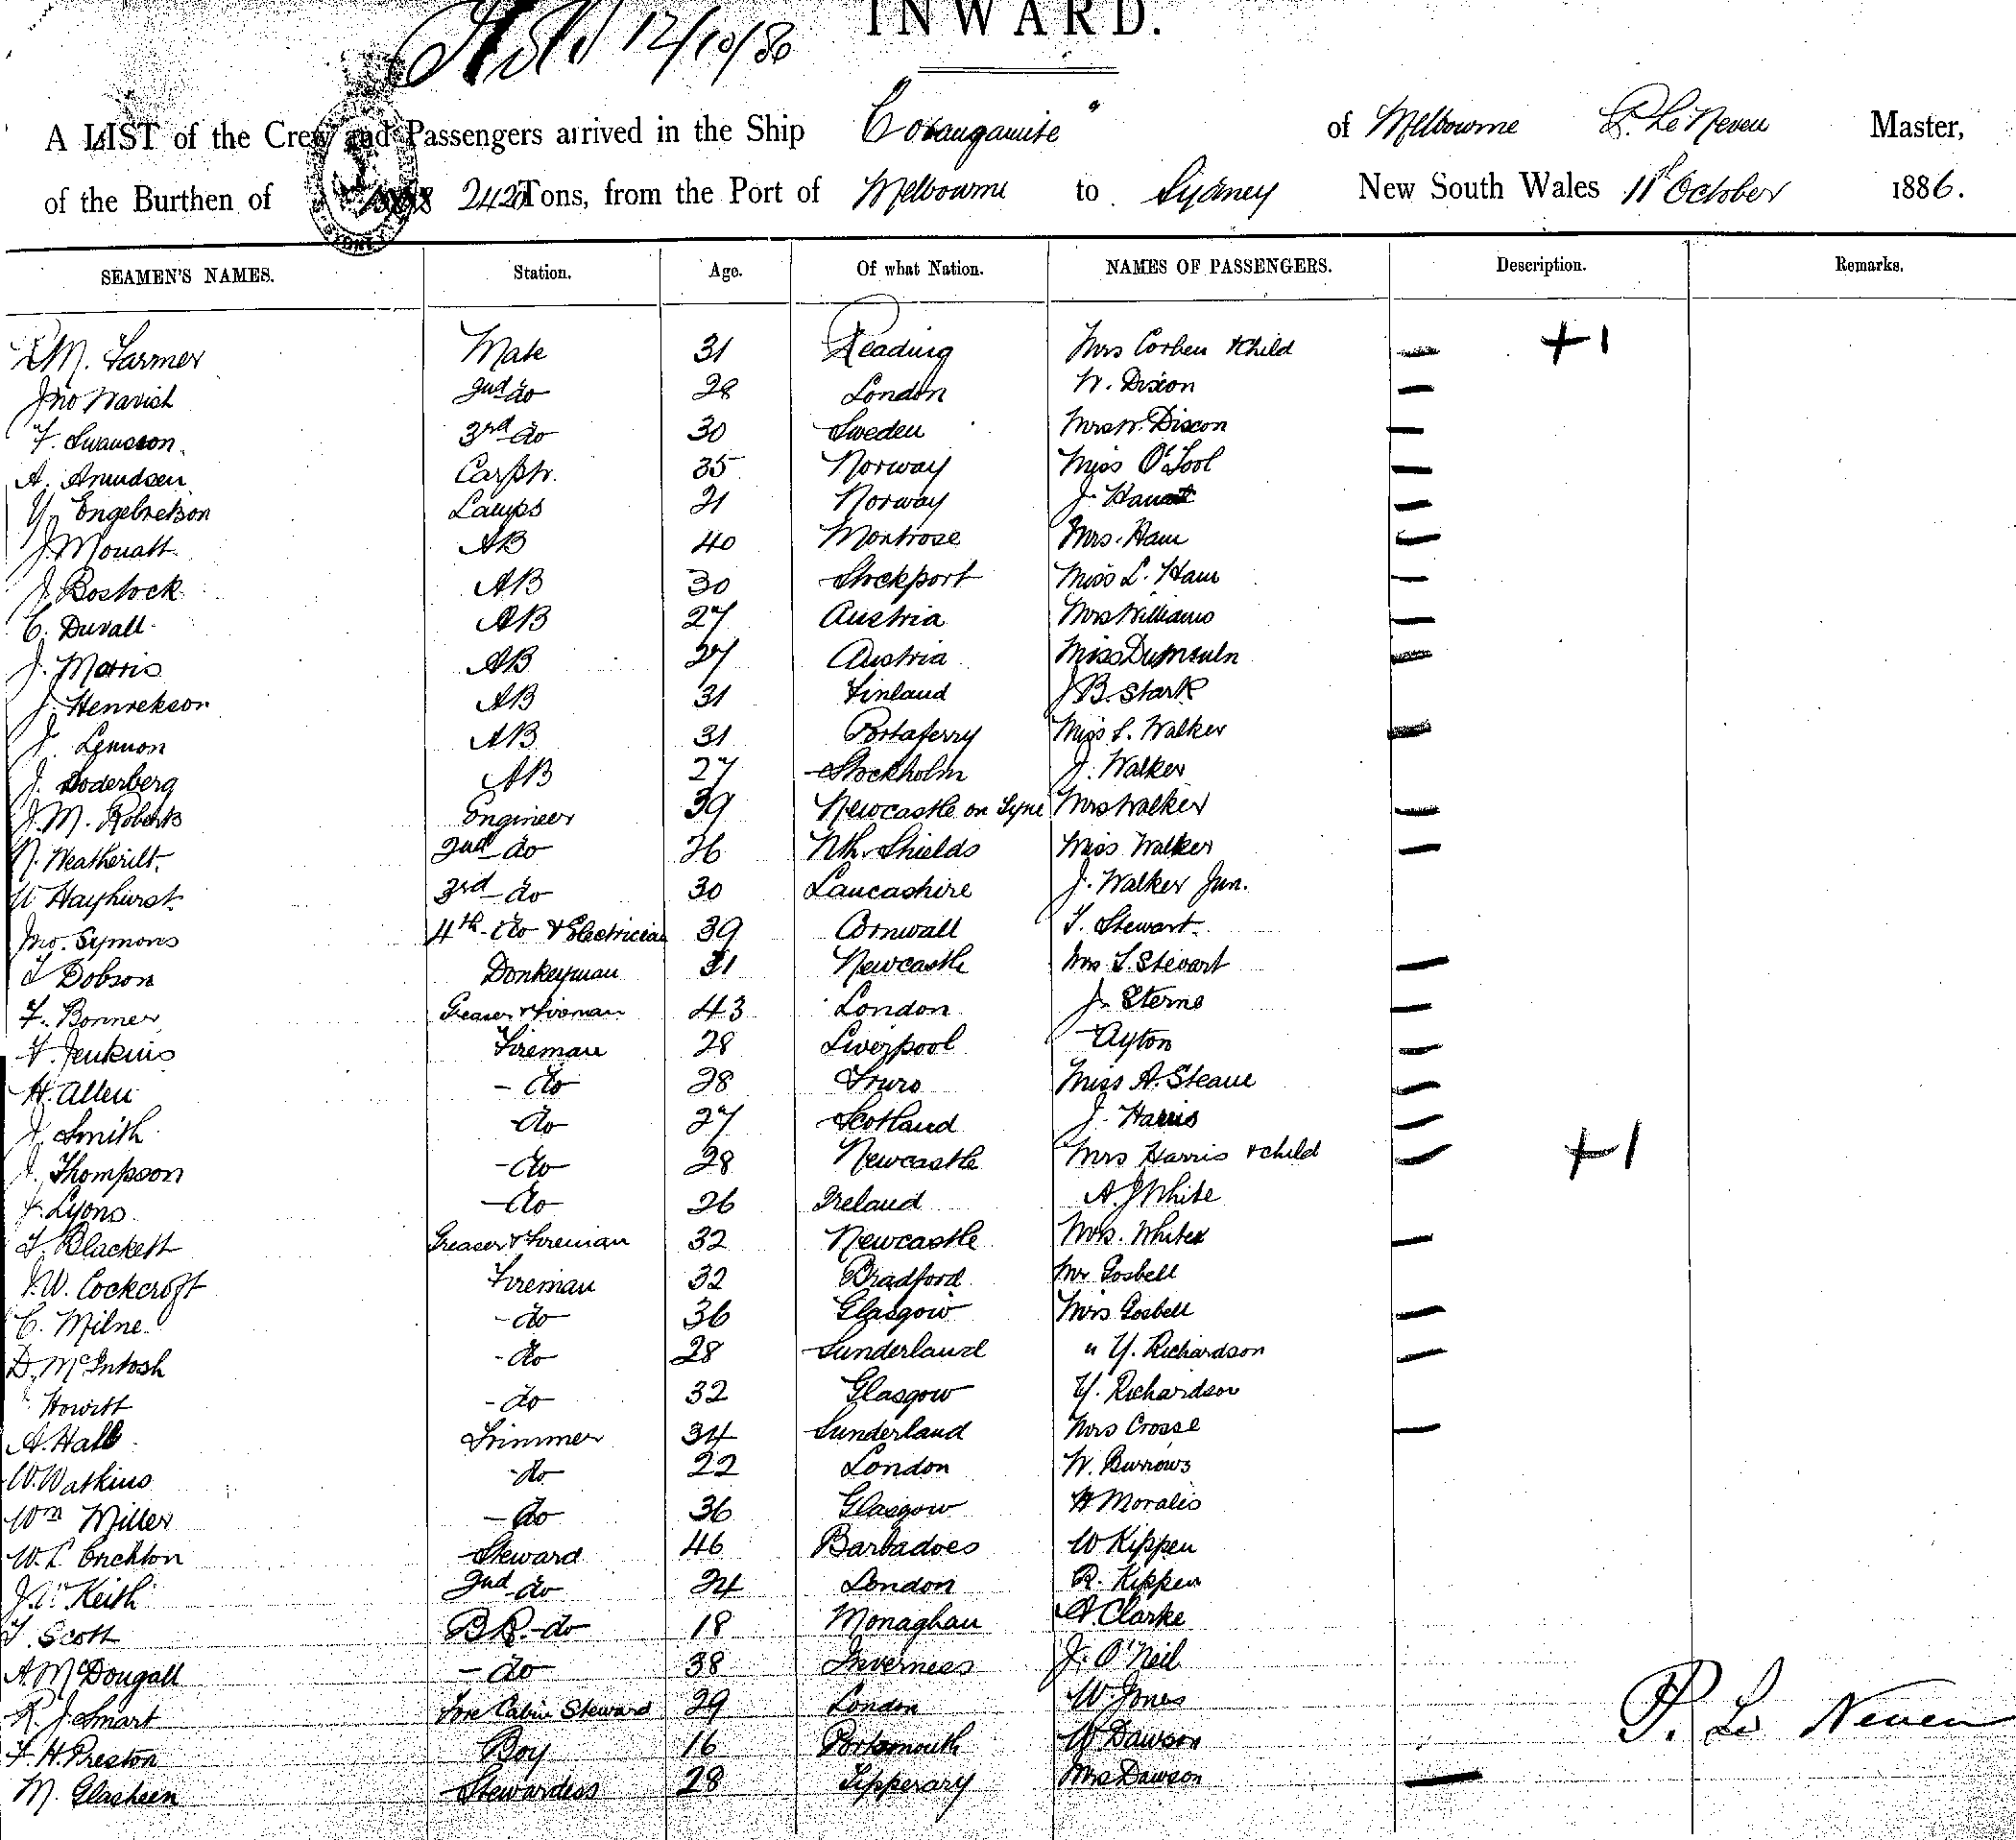 12/10/86
INWARD.
A LIST of the Crew and Passengers arrived in the Ship Corangamite" of Melbourne P. Le Neveu Master,
of the Burthen of 2420 Tons, from the Port of Melbourne to Sydney New South Wales 11th October 1886.
SEAMEN'S NAMES. Station. Age. Of what Nation. NAMES OF PASSENGERS. Description. Remarks.
M. Farmer Mate 31 Reading Mrs Corben & child +1
Jno Navish 2nd do 28 London W. Dixon
F. Swansson 3rd do 30 Sweden Mrs W. Dixon
A. Amundsen Carptr. 35 Norway Miss O'Tool
Engebretson Lamps 21 Norway J.
J Mouatt AB 40 Montrose Mrs. Ham
J. Bostock AB 30 Stockport Miss L. Ham
C. Duvall AB 27 Austria Mrs Williams
J. Morris AB 27 Austria Miss
J. Henrekson AB 31 Finland J B. Stark
J. Lennon AB 31 Portaferry Miss L. Walker
J. Soderberg AB 27 Stockholm J. Walker
J. M. Roberts Engineer 39 Newcastle on Tyne Mrs Walker
N. Weatherilt. 2nd do 26 Nth. Shields Miss Walker
W Hayhurst 3rd do 30 Lancashire J. Walker Jun.
Jno. Symons 4th do & Electrician 39 Cornwall T. Stewart.
T Dobson Donkeyman 31 Newcastle Mrs T. Stewart
F. Bonner Greaser & Fireman 43 London J. Sterne
Jenkins Fireman 28 Liverpool Ayton
H. Allen - do 28 Truro Miss A. Steane
J. Smith - do 27 Scotland J. Harris
J. Thompson - do 28 Newcastle Mrs Harris & child +1
Lyons - do 26 Ireland A. J White
T. Blackett Greaser & Fireman 32 Newcastle Mrs. White
J. W. Cockcroft Fireman 32 Bradford Mr Gosbell
C. Milne - do 36 Glasgow Mrs Gosbell
D. McIntosh - do 28 Sunderland " Y. Richardson
Howitt - do 32 Glasgow Y. Richardson
A. Hall Trimmer 34 Sunderland Mrs Crosse
W. Watkins - do 22 London W. Burrows
Wm Miller - do 36 Glasgow H Moralis
W. L. Crichton Steward 46 Barbadoes W Kippen
Keith 2nd do 24 London R. Kippen
T. Scott B R. do 18 Monaghan A. Clarke
A. McDougall - do 38 Inverness J. O'Neil
R. J. Smart Fore Cabin Steward 29 London W Jones
F. H. Preston Boy 16 Portsmouth W Dawson
M. Glasheen Stewardess 28 Tipperary Mrs Dawson
P. Le Neveu